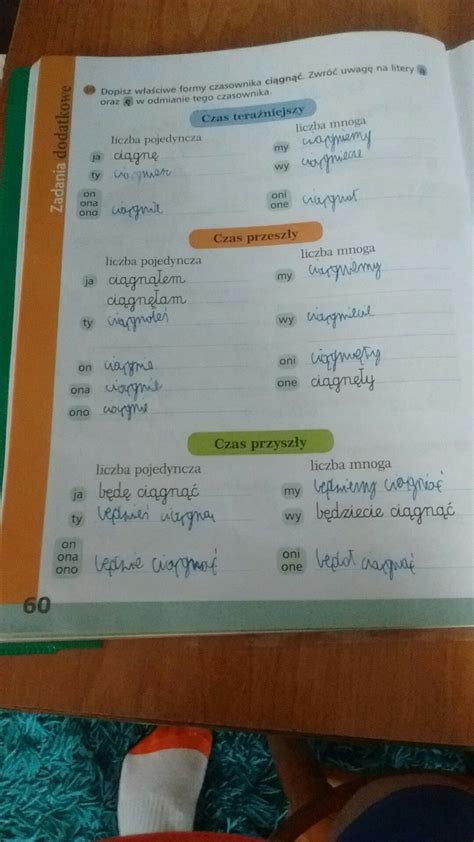 Zadania dodatkowe
Dopisz właściwe formy czasownika ciągnąć. Zwróć uwagę na litery ą
oraz ę w odmianie tego czasownika.
Czas teraźniejszy
liczba pojedyncza
liczba mnoga
ja ciągnę
my ciągniemy
ty
wy ciągniecie
on
ona
ono
ciągnie
oni
one
Czas przeszły
liczba pojedyncza
liczba mnoga
ja ciągnąłem
ciągnęłam
my ciągniemy
ty
wy ciągniecie
on ciągnie
oni
ona ciągnie
one ciągnęły
ono ciągnie
Czas przyszły
liczba pojedyncza
liczba mnoga
ja będę ciągnąć
my będziemy ciągnąć
ty będzieś
wy będziecie ciągnąć
on
ona
ono
będzie ciągnąć
oni
one
ciągnąć
60